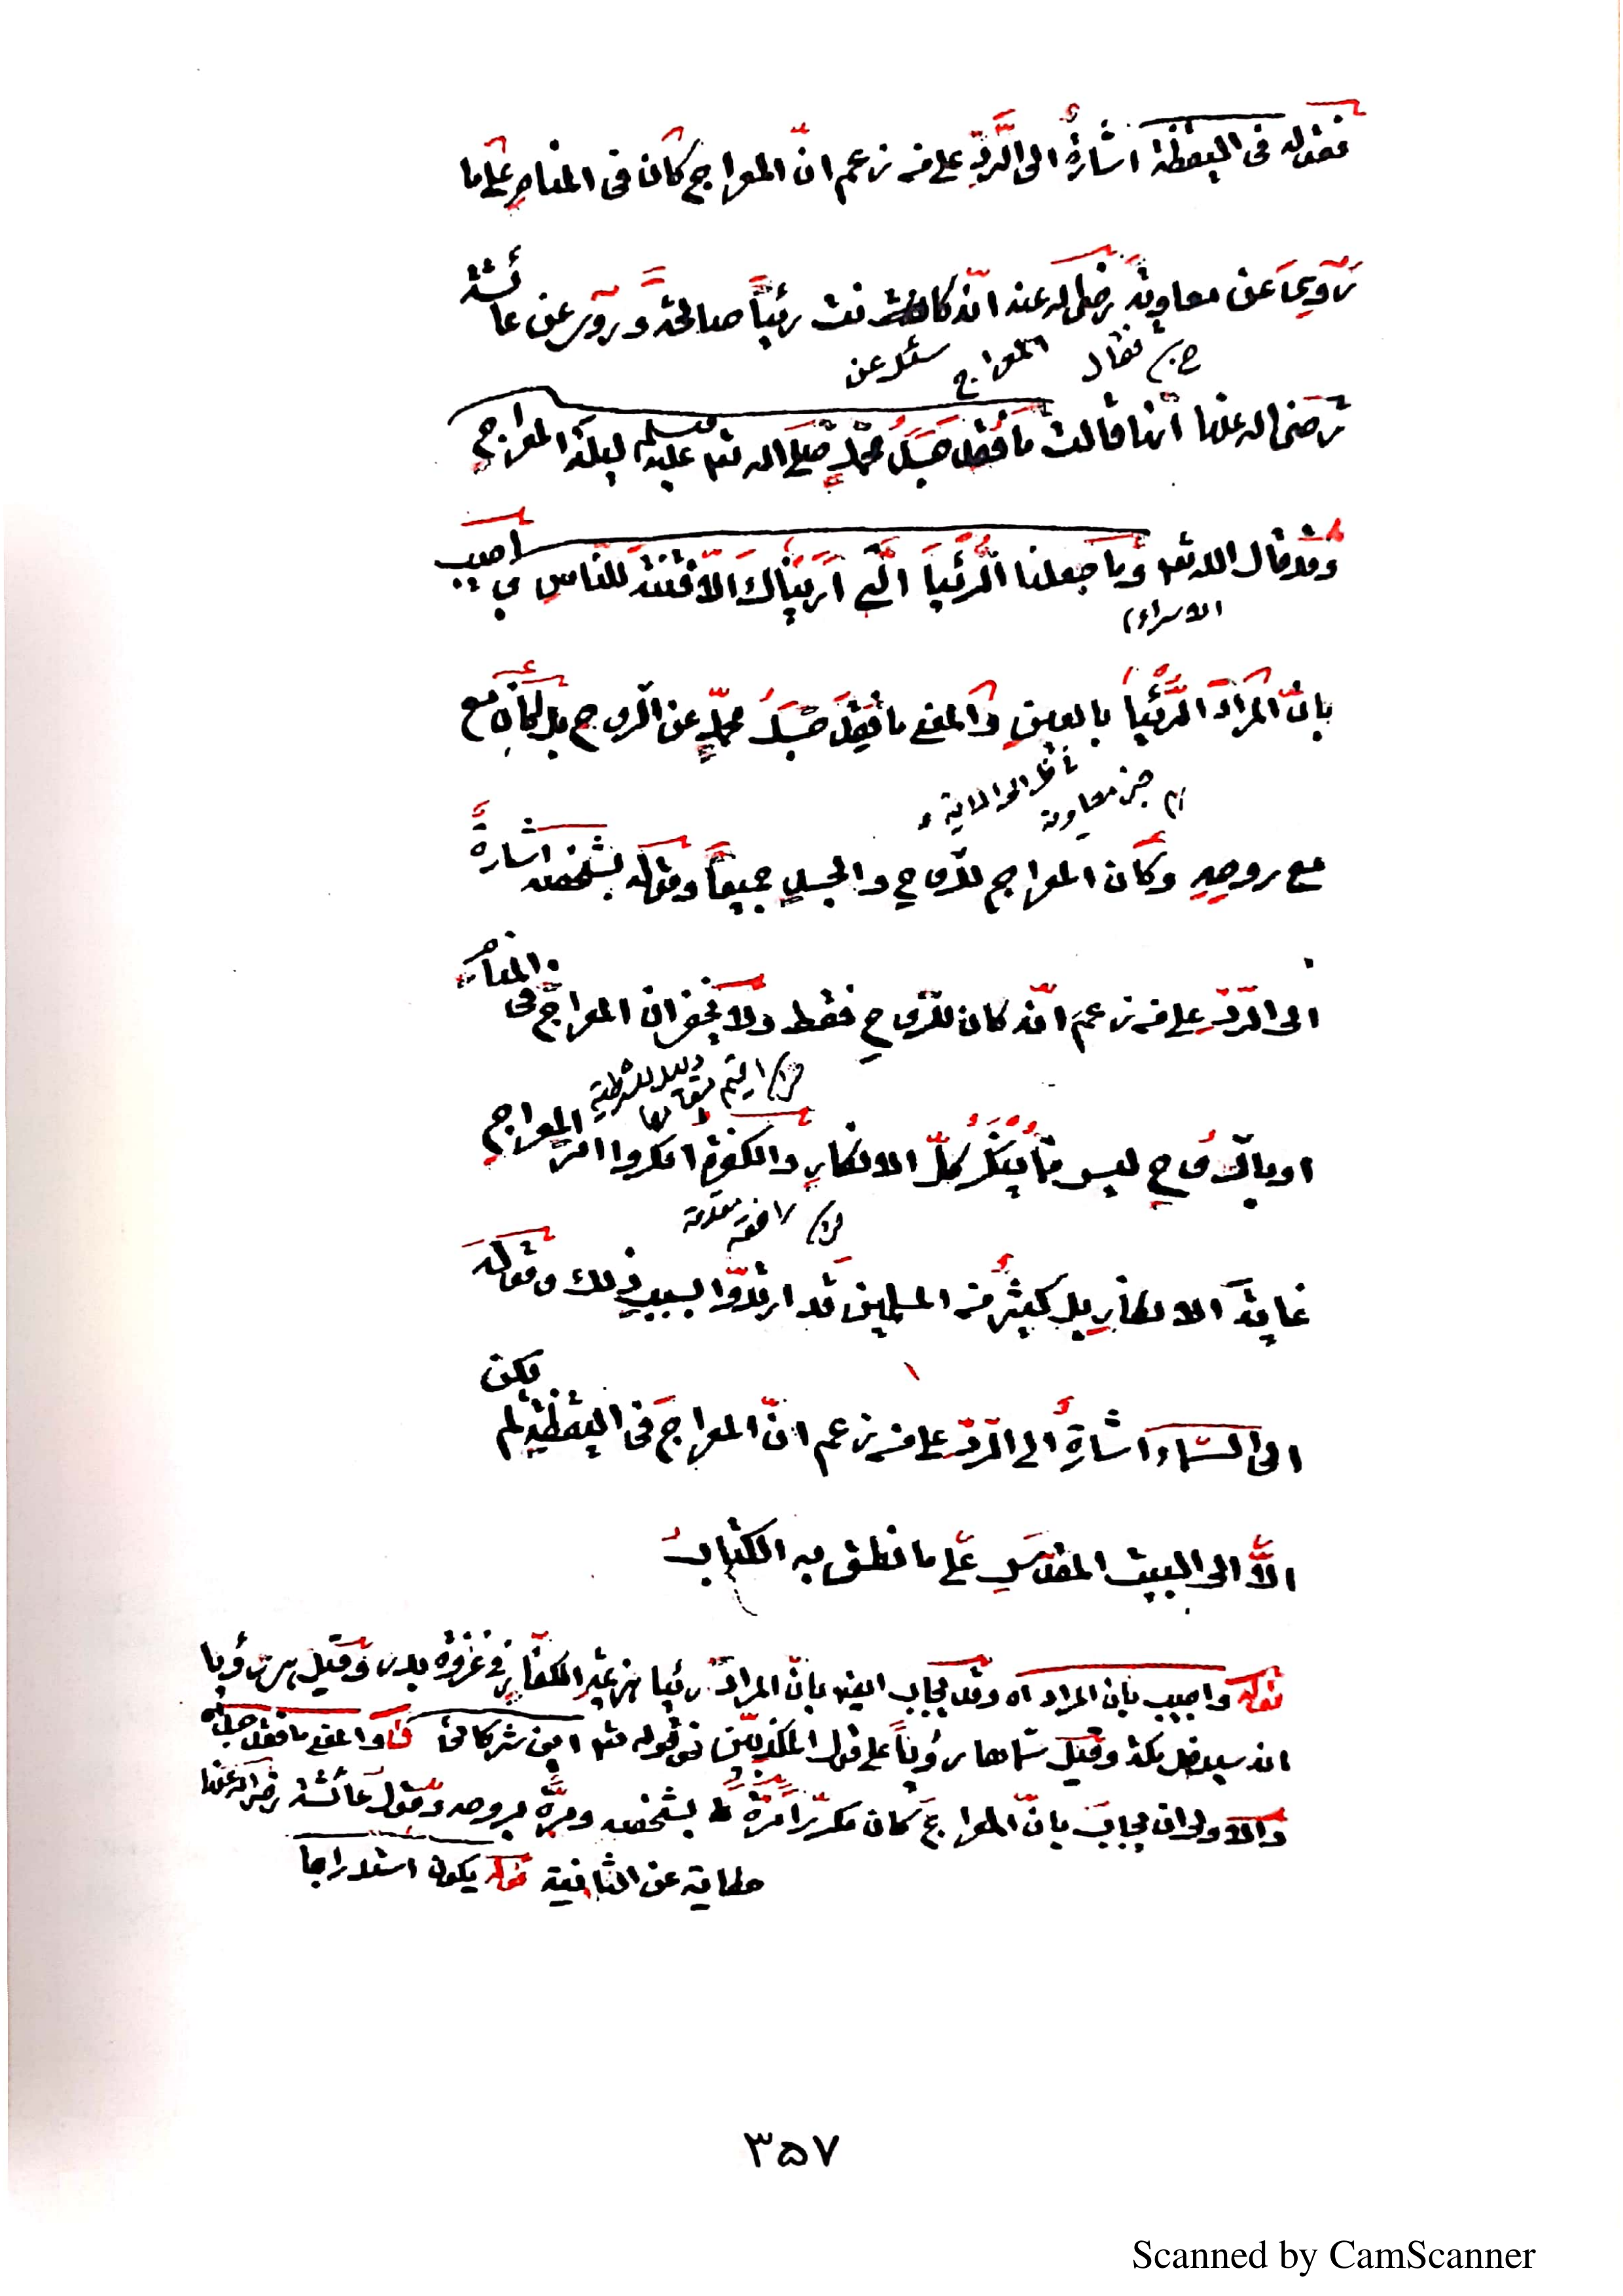 فقوله فى اليقظة اشارة الى الرّدّ على من زعم انّ المعراج كان فى المنام على ما
روى عن معاوية رضى الله عنه انّه كانت رئيًا صالحة و روى عن عائشة
فقال المعراج سئل عن
رضى الله عنها انّها قالت ما فُقِدَ جَسَدُ محمّدٍ صلى الله تع عليه وسلم ليلة المعراج
وقد قال الله تع وما جعلنا الرّئيا الّتى اريناك الّا فتنة للنّاس واجيب
الاسراء
بانّ المراد الرّئيا بالعين والمعنى ما فُقِدَ جَسَدُ محمّدٍ عن الرّوح بل كان مع
خبر معاوية ناظر الى الاية
مع روحه وكان المعراج للرّوح والجسد جميعًا وقوله بشخصه اشارة
الى الرّدّ على من زعم انّه كان للرّوح فقط ولا يخفى ان المعراج فى المنام
دليل للشرطية
او بالرّوح ليس ممّا يُنْكَرُ كلَّ الانكار والكفرة انكروا امر المعراج
غاية الانكار بل كثيرٌ من المسلمين قد ارتدّوا بسبب ذلك وقوله
الى السّماء اشارةٌ الى الرّدّ على من زعم انّ المعراج فى اليقظة لم يكن
الّا الى البيت المقدّس على ما نطق به الكتاب
قوله واجيب بان المراد اه وقد يجاب ايضا بانّ المراد رئيا هزيمة الكفّار فى غزوة بدر وقيل هى رؤيا
انه سيدخل مكة وقيل سمّاها رؤيًا على قول المكذبين نحو قوله تع اين شركائى قوله والمعنى ما فقد جسده
والاولى ان يجاب بانّ المعراج كان مكررًا مرّة بشخصه ومرّة بروحه وقول عائشة رضى الله عنها
حكاية عن الثانية قوله يكون استدراجا
٣٥٧
Scanned by CamScanner